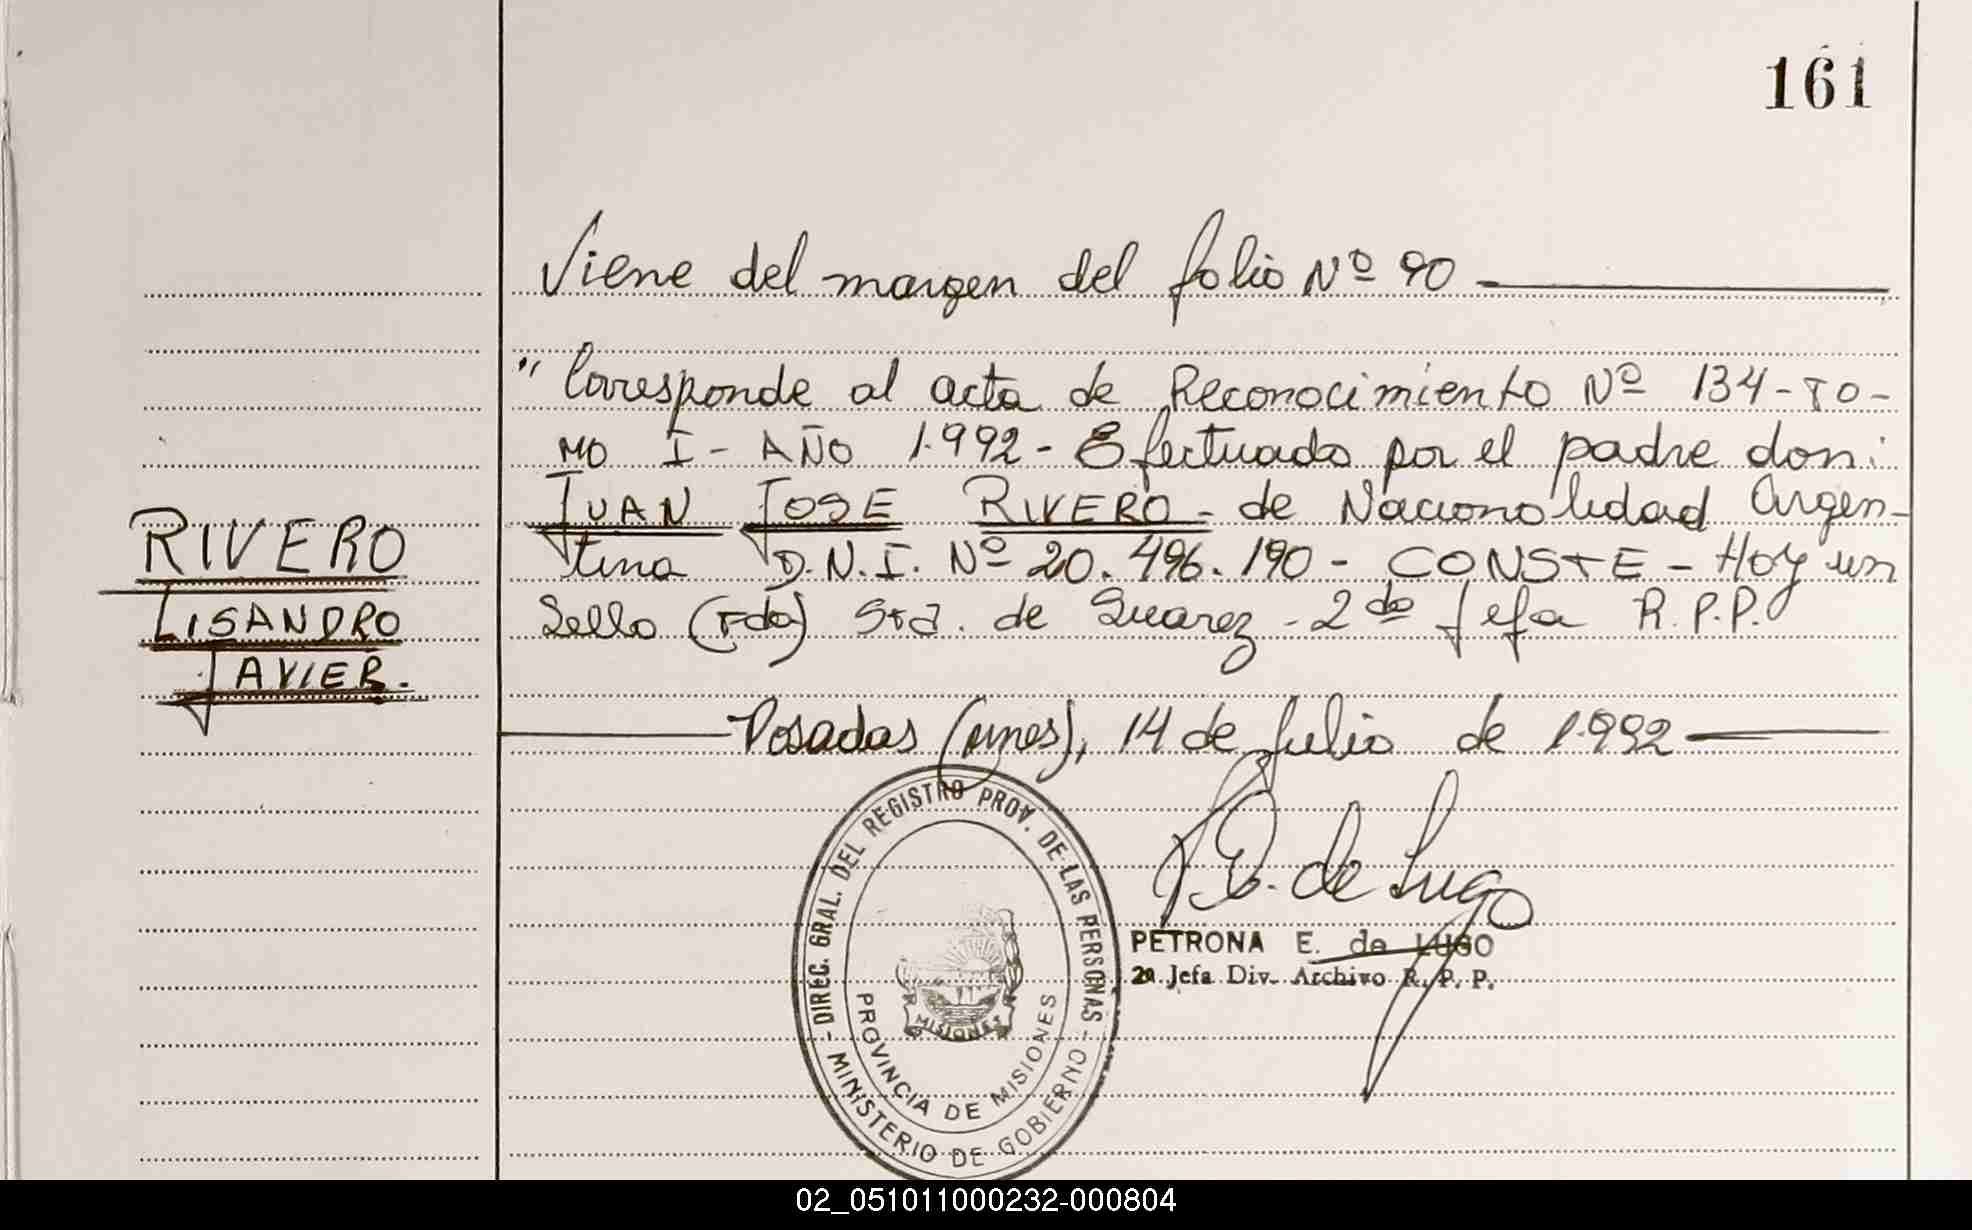 161
Viene del margen del folio Nº 90
" Corresponde al acta de Reconocimiento Nº 134-TO-
MO I - AÑO 1.992 - Efectuado por el padre don:
JUAN JOSE RIVERO - de Nacionalidad Argen-
tina D.N.I. Nº 20.496.190 - CONSTE - Hoy un
Sello (Fdo) Sra. de Suarez - 2da Jefa R.P.P.
RIVERO
LISANDRO
JAVIER.
Posadas (Mnes), 14 de Julio de 1.992
P.E. de Lugo
PETRONA E. de LUGO
2a Jefa Div. Archivo R. P. P.
- DIREC. GRAL. DEL REGISTRO PROV. DE LAS PERSONAS -
MINISTERIO DE GOBIERNO
PROVINCIA DE MISIONES
MISIONES
02_051011000232-000804